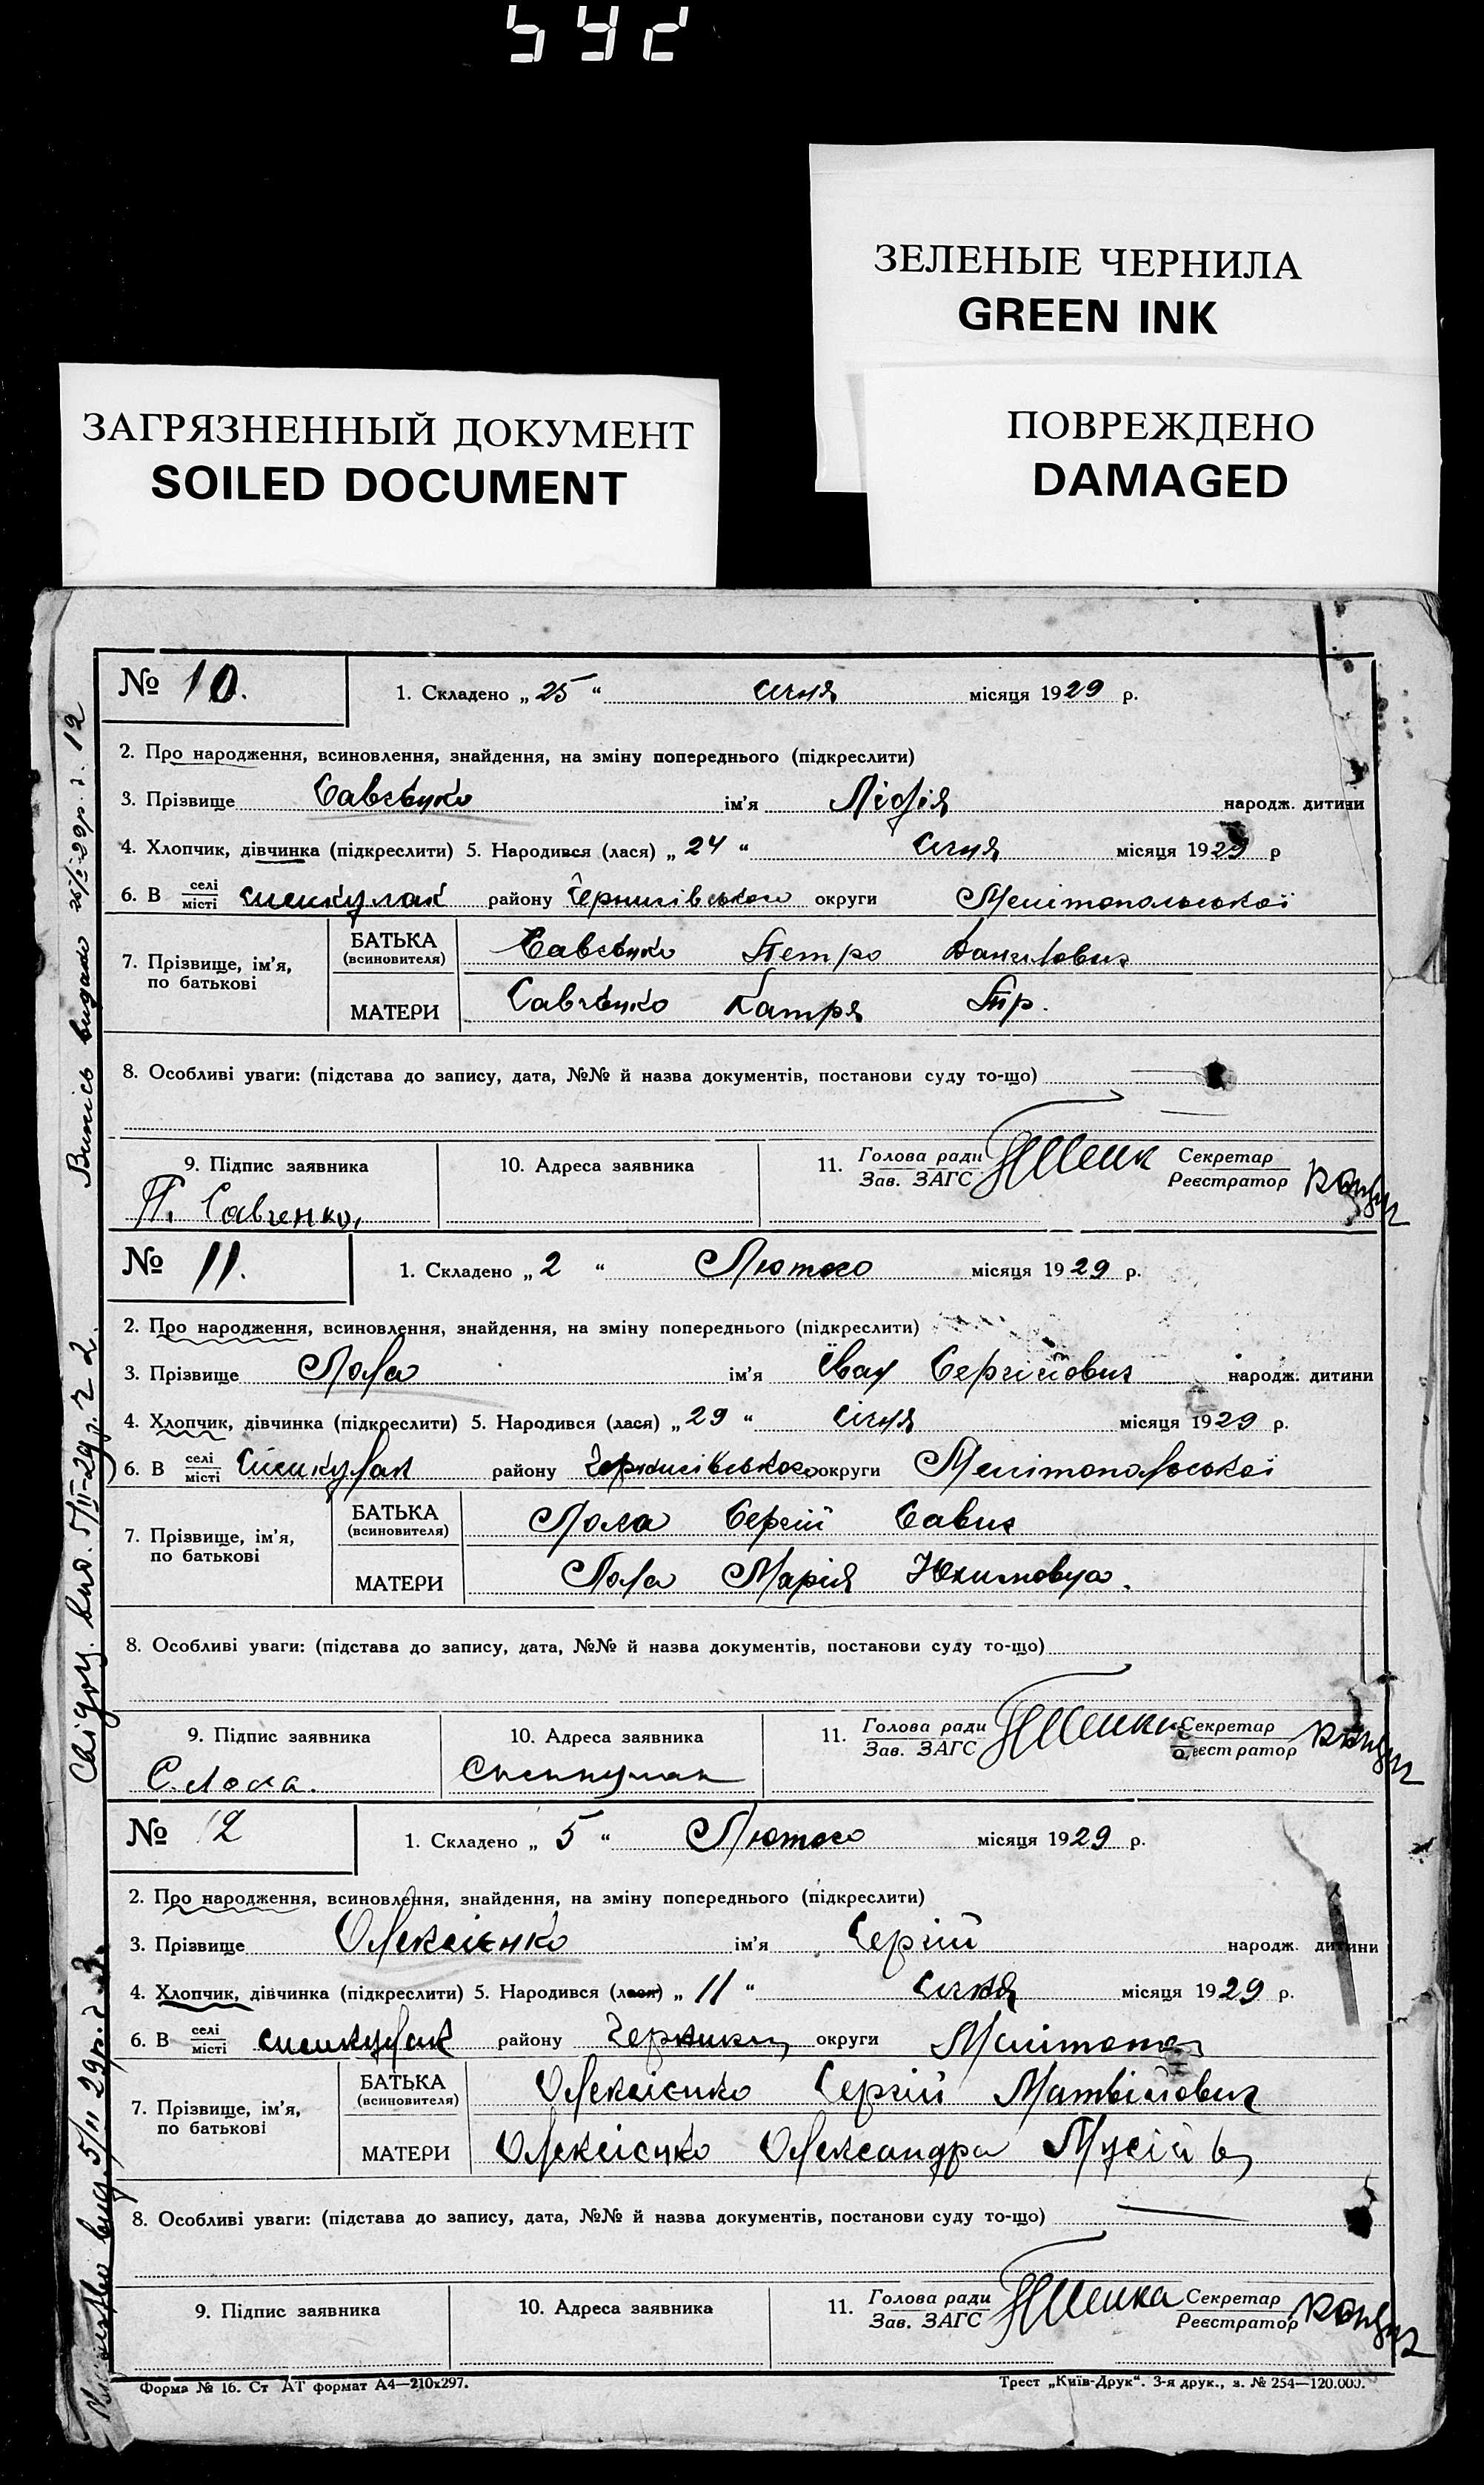 542
ЗЕЛЕНЫЕ ЧЕРНИЛА
GREEN INK
ЗАГРЯЗНЕННЫЙ ДОКУМЕНТ
SOILED DOCUMENT
ПОВРЕЖДЕНО
DAMAGED
№ 10. 1. Складено „ 25 “ січня місяця 1929 р.
2. Про народження, всиновлення, знайдення, на зміну попереднього (підкреслити)
3. Прізвище Савченко ім'я Лідія народж. дитини
4. Хлопчик, дівчинка (підкреслити) 5. Народився (лася) „ 24 “ січня місяця 1929 р
6. В селі
місті району Чернигівського округи Мелітопольської
7. Прізвище, ім'я,
по батькові
БАТЬКА
(всиновителя) Савченко Петро Данилович
МАТЕРИ Савченко Катря Гр.
8. Особливі уваги: (підстава до запису, дата, №№ й назва документів, постанови суду то-що)
9. Підпис заявника 10. Адреса заявника 11. Голова ради
Зав. ЗАГС Секретар
Реєстратор
П. Савченко.
Випись видано 25/I-29р. з. 12
№ 11. 1. Складено „ 2 “ Лютого місяця 1929 р.
2. Про народження, всиновлення, знайдення, на зміну попереднього (підкреслити)
3. Прізвище Лола ім'я Іван Сергійович народж. дитини
4. Хлопчик, дівчинка (підкреслити) 5. Народився (лася) „ 29 “ січня місяця 1929 р.
6. В селі
місті району Чернигівського округи Мелітопольської
7. Прізвище, ім'я,
по батькові
БАТЬКА
(всиновителя) Лола Сергій Савич
МАТЕРИ Лола Марія Юхимовна.
8. Особливі уваги: (підстава до запису, дата, №№ й назва документів, постанови суду то-що)
9. Підпис заявника 10. Адреса заявника 11. Голова ради
Зав. ЗАГС Секретар
Реєстратор
С. Лола.
№ 12 1. Складено „ 5 “ Лютого місяця 1929 р.
2. Про народження, всиновлення, знайдення, на зміну попереднього (підкреслити)
3. Прізвище Олексієнко ім'я Сергій народж. дитини
4. Хлопчик, дівчинка (підкреслити) 5. Народився (лася) „ 11 “ січня місяця 1929 р.
6. В селі
місті району округи
7. Прізвище, ім'я,
по батькові
БАТЬКА
(всиновителя) Олексієнко Сергій Матвійович
МАТЕРИ Олексієнко Олександра Мусіїв
8. Особливі уваги: (підстава до запису, дата, №№ й назва документів, постанови суду то-що)
9. Підпис заявника 10. Адреса заявника 11. Голова ради
Зав. ЗАГС Секретар
Реєстратор
Форма № 16. Ст АТ формат А4—210x297. Трест „Київ-Друк“. 3-я друк., з. № 254—120.000.